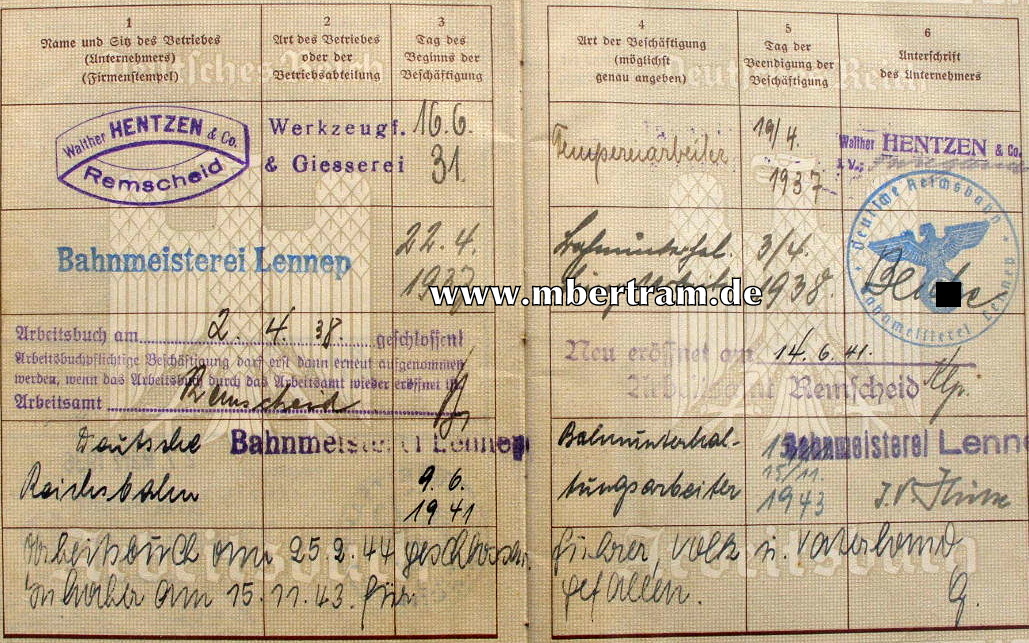 1
Name und Sitz des Betriebes
(Unternehmers)
(Firmenstempel)
2
Art des Betriebes
oder der
Betriebsabteilung
3
Tag des
Beginns der
Beschäftigung
4
Art der Beschäftigung
(möglichst
genau angeben)
5
Tag der
Beendigung der
Beschäftigung
6
Unterschrift
des Unternehmers
Walther HENTZEN & Co.
Remscheid
Werkzeugf.
& Giesserei
16.6.
31.
Temperearbeiter
19/4.
1937
Walther HENTZEN & Co.
Bahnmeisterei Lennep
22.4.
1937
3/4.
1938.
Deutsche Reichsbahn
Bahnmeisterei Lennep
www.mbertram.de
Arbeitsbuch am 2. 4. 38. geschlossen!
Arbeitsbuchpflichtige Beschäftigung darf erst dann erneut aufgenommen
werden, wenn das Arbeitsbuch durch das Arbeitsamt wieder eröffnet ist
Arbeitsamt Remscheid
Neu eröffnet am 14.6.41.
Arbeitsamt Remscheid
Deutsche
Reichsbahn
Bahnmeisterei Lennep
9.6.
1941
Bahnunterhal-
tungsarbeiter
15/11.
1943
Bahnmeisterei Lenne
J.V.
Arbeitsbuch am 25.2.44 geschlossen.
Inhaber am 15.11.43. für
Führer, Volk u. Vaterland
gefallen.